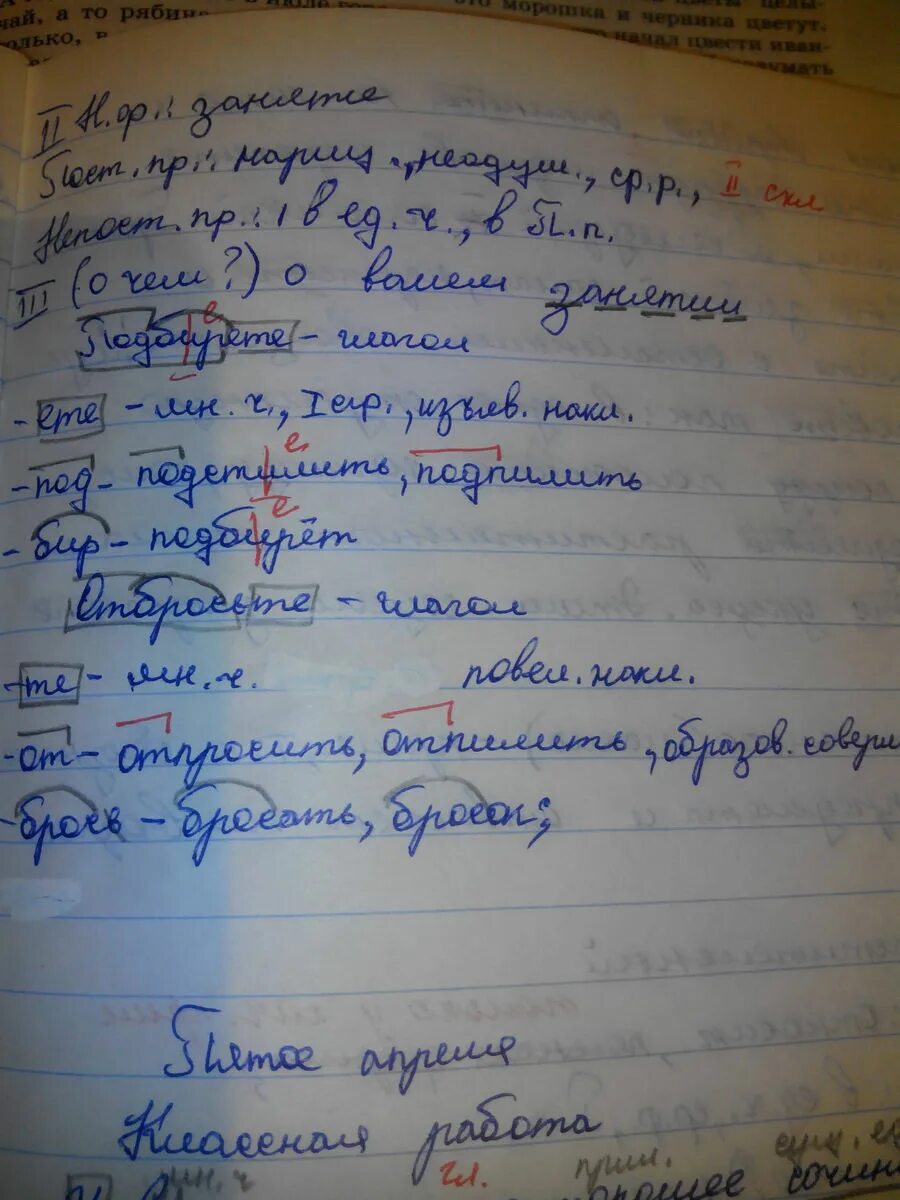 чай, а то рябина
морошка и черника цветут.
начал цвести иван-
II Н.ф.: занятие
Пост. пр.: нариц., неодуш., ср.р., II скл
Непост. пр.: в ед. ч., в П.п.
III (о чем?) о вашем занятии
е
Подбирете - глагол
-ете - мн. ч., I спр., изъяв. накл.
е
-под- подстилить, подпилить
е
-бир- подбирёт
Отбросьте - глагол
-те - мн. ч. повел. накл.
-от- отпросить, отпилить, образов. соверш
-брось - бросать, бросок;
Пятое апреля
Классная работа
мн. ч гл. прил. сущ. ед
хорошее сочин